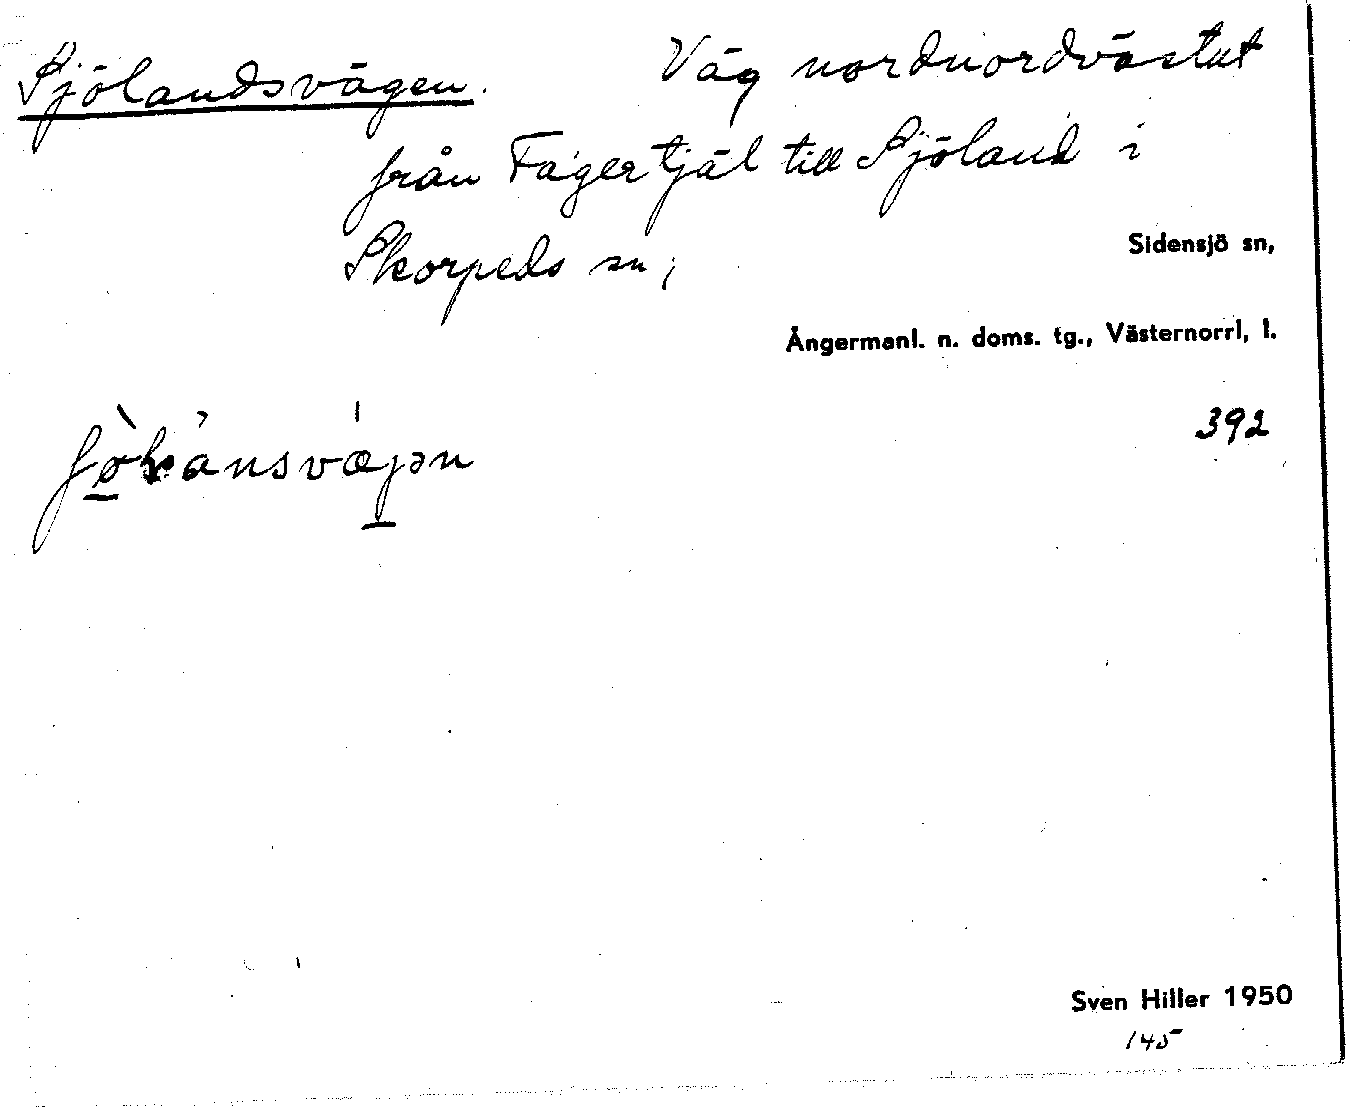 Sjölandsvägen. Väg nordnordvästut
från Fagertjäl till Sjöland i
Skorpeds sn;
Sidensjö sn,
Ångermanl. n. doms. tg., Västernorrl, l.
392
Sven Hiller 1950
145